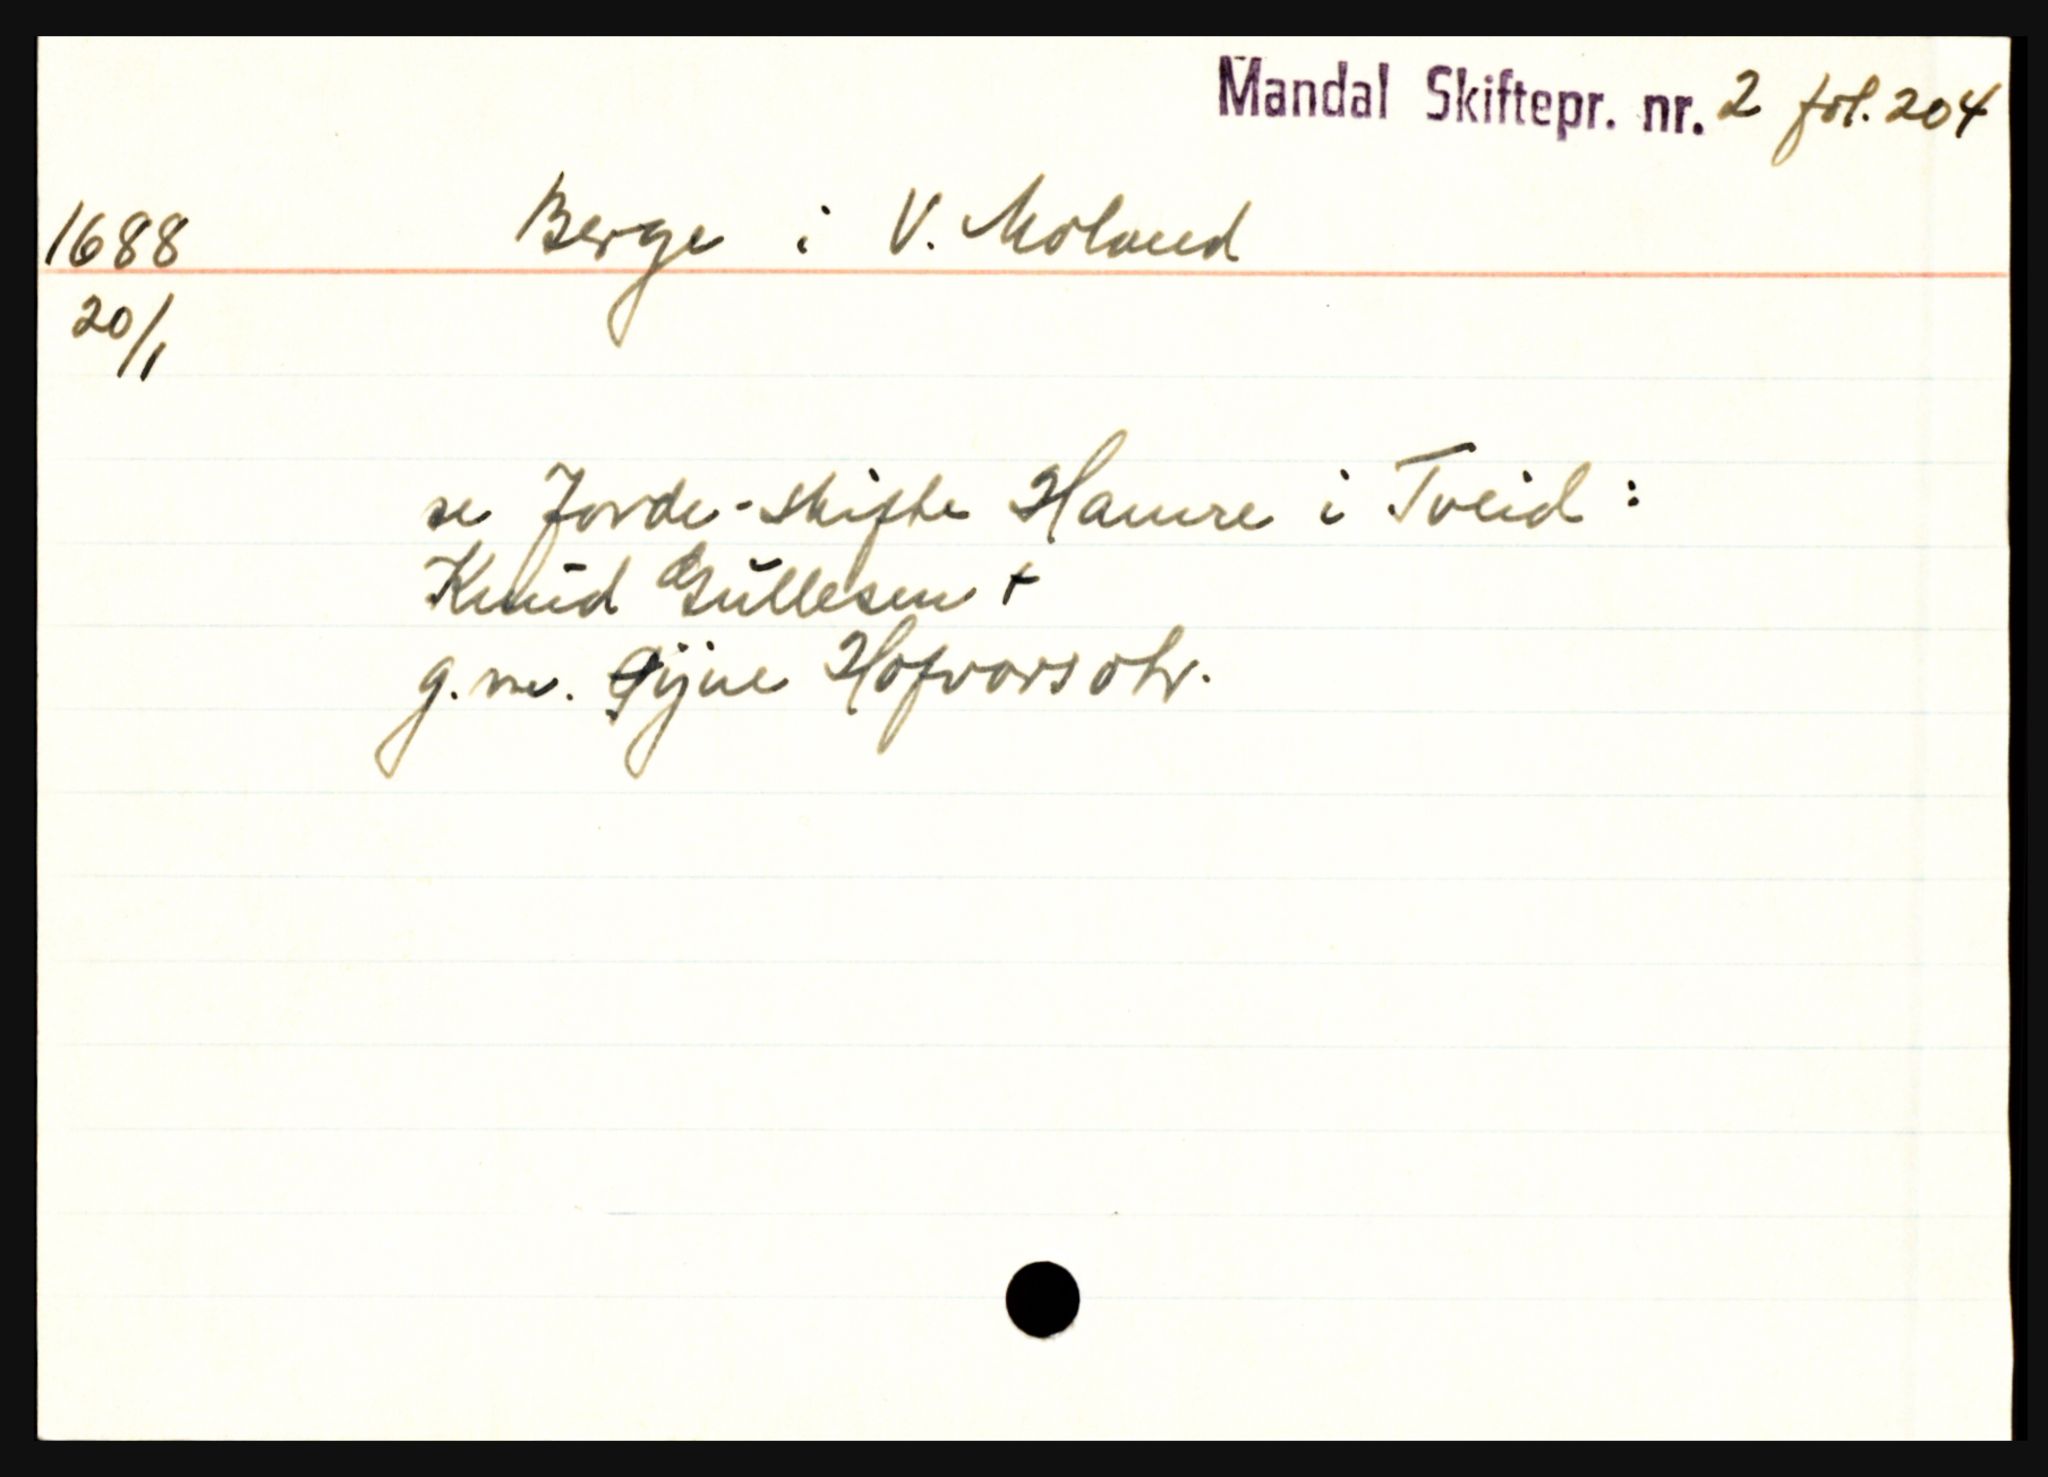 Mandal Skiftepr. nr. 2 fol. 204
1688 Berge i V. Moland
20/1
se Jorde-skifte Hamre i Tveid :
Knūd Gŭllesen +
g.m. Øijne Hofvorsdtr.